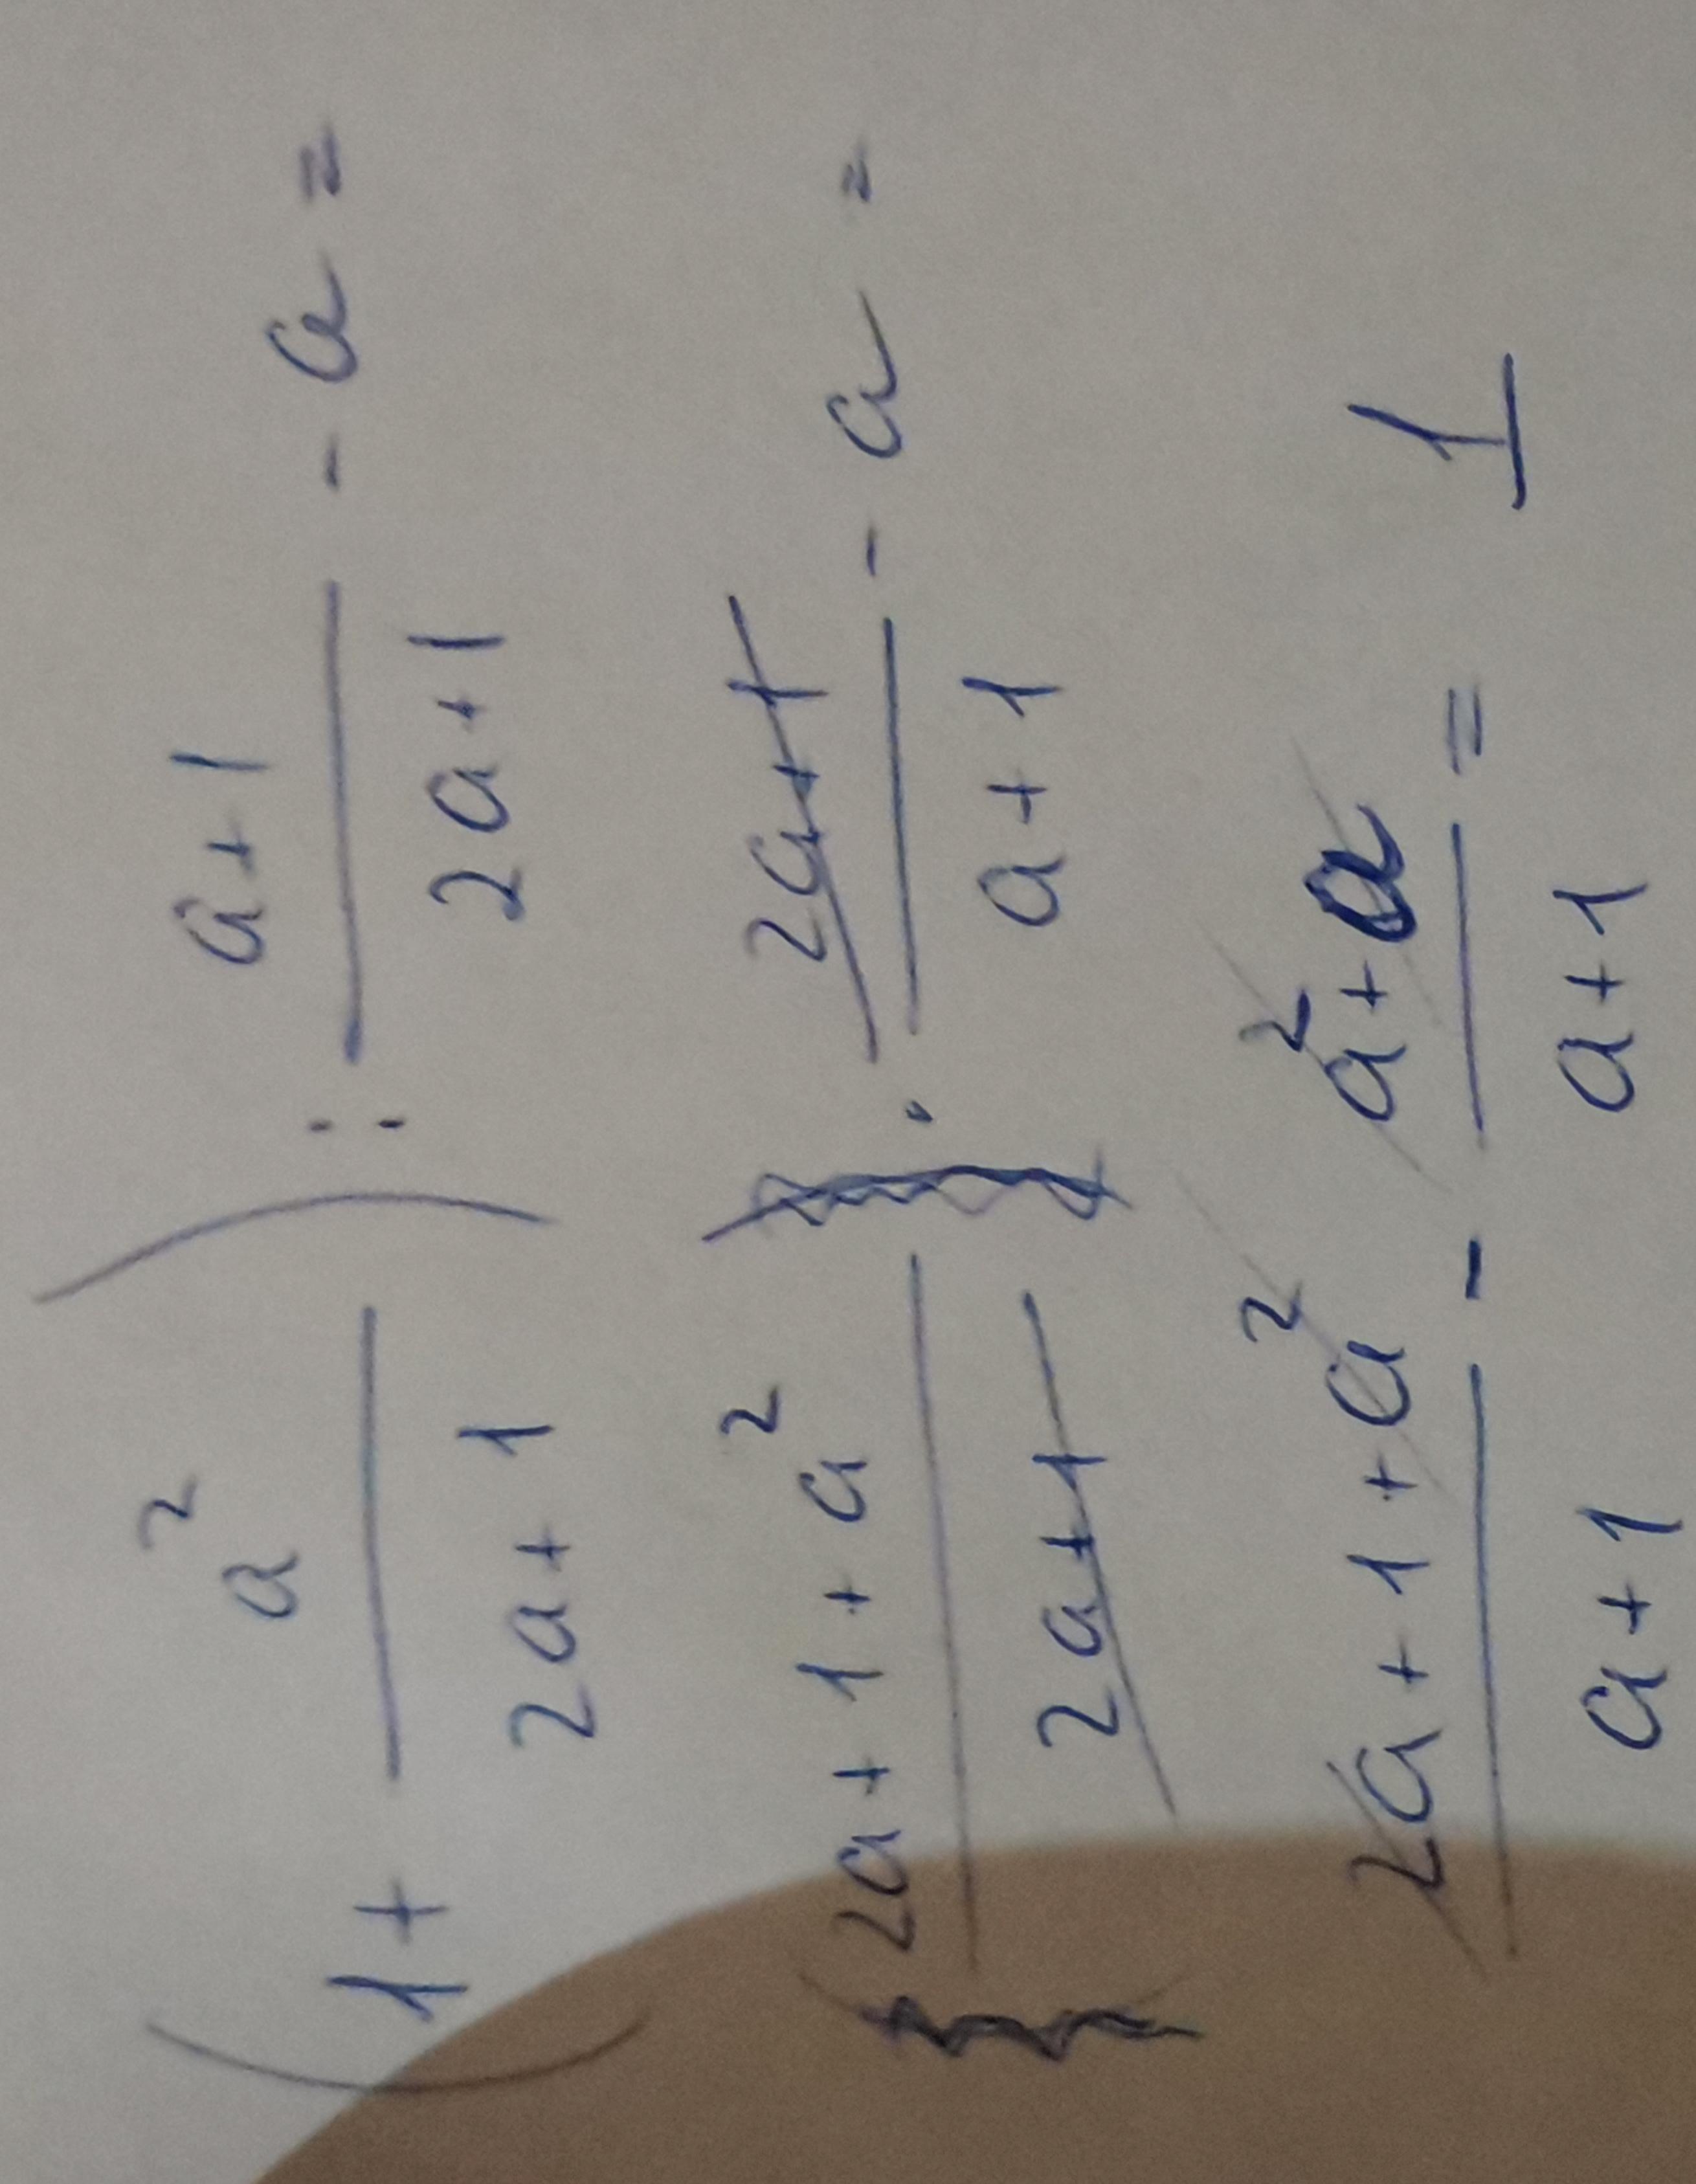 (1 + a² / 2a + 1) : a + 1 / 2a + 1 - a =
2a + 1 + a² / 2a + 1 · 2a + 1 / a + 1 - a =
2a + 1 + a² / a + 1 - a² + a / a + 1 = 1